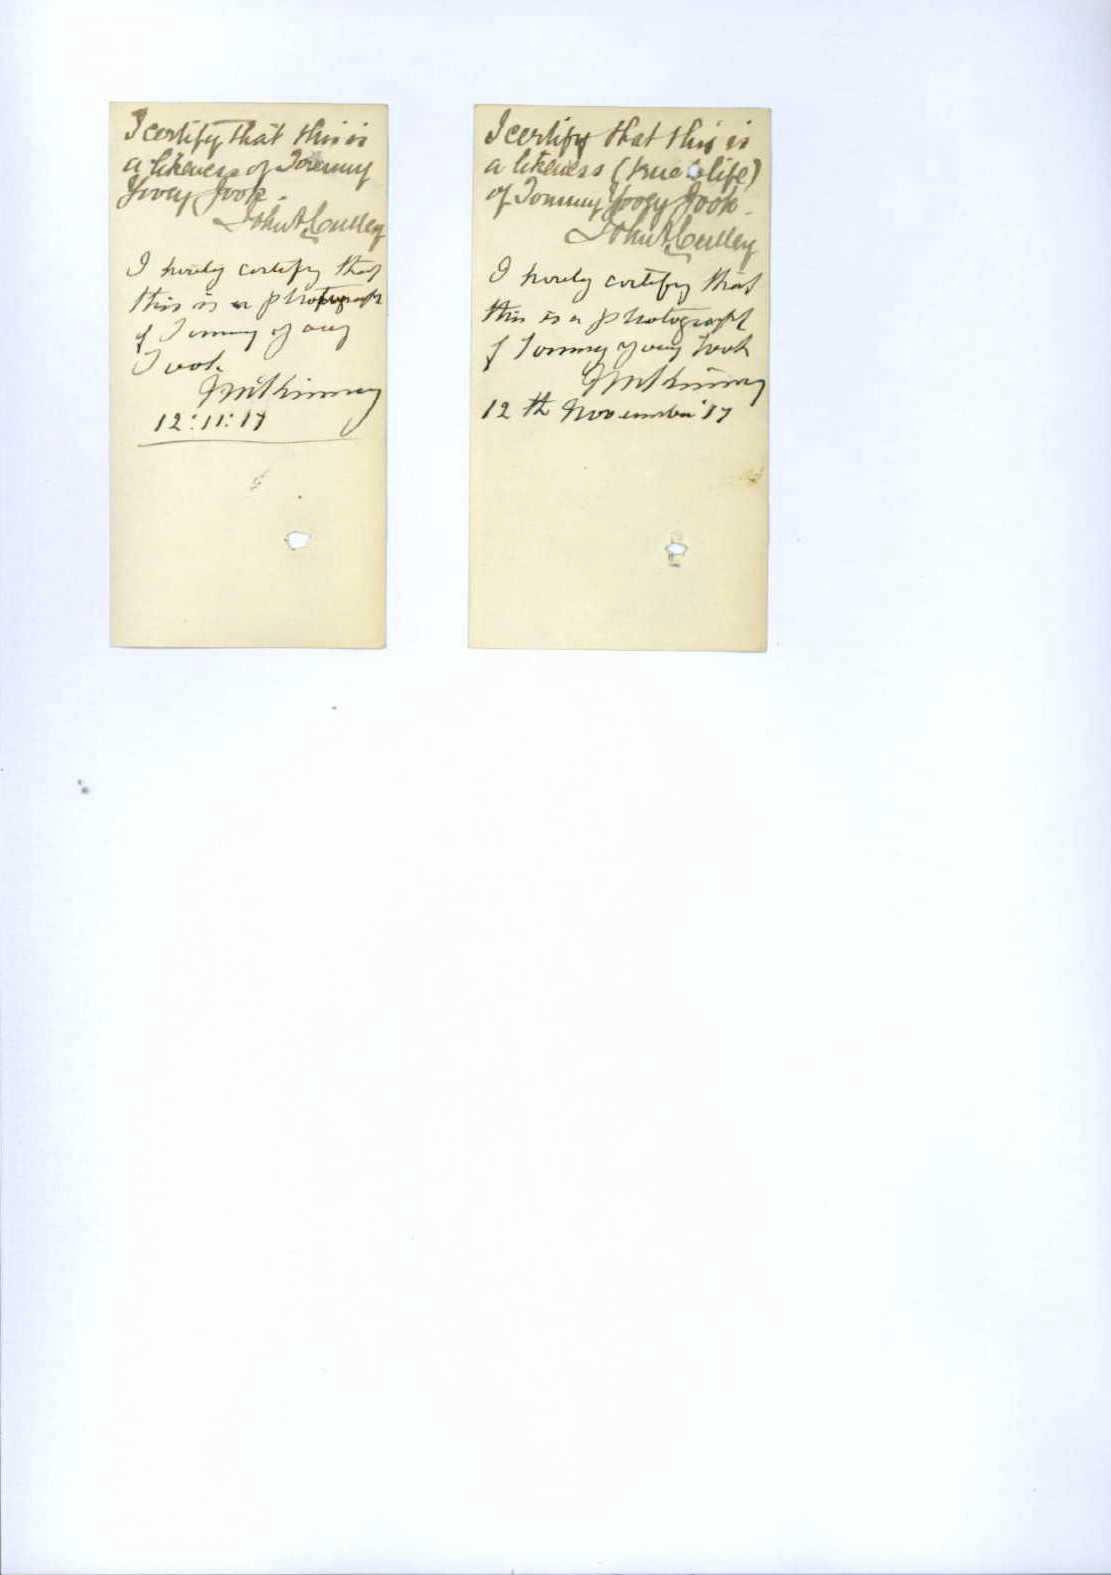 I certify that this is
a likeness of Tommy
Yooey Jook.
John A Culley
I hereby certify that
this is a photograph
of Tommy
12:11:17
I certify that this is
a likeness (true to life)
of Tommy Yooey Jook.
John A Culley
I hereby certify that
this is a photograph
of Tommy
12th November '17